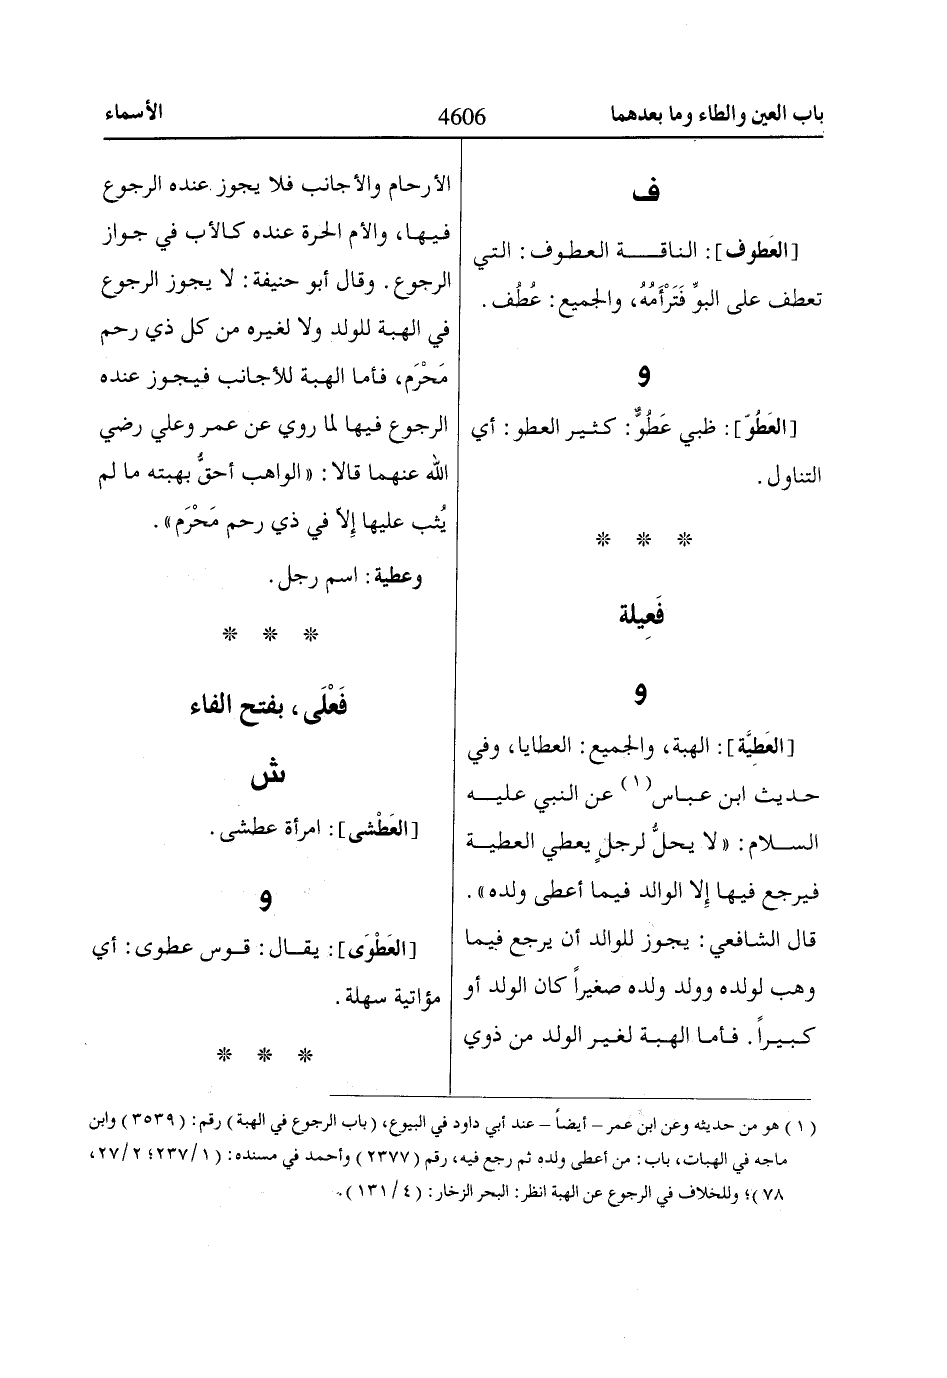 باب العين والطاء وما بعدهما 4606 الأسماء
ف
[العَطوف]: الناقة العطوف: التي
تعطف على البوِّ فَتَرْأَمُهُ، والجميع: عُطُف.
و
[العَطُوّ]: ظبي عَطُوٌّ: كثير العطو: أي
التناول.
* * *
فَعِيلة
و
[العَطِيَّة]: الهبة، والجميع: العطايا، وفي
حديث ابن عباس(١) عن النبي عليه
السلام: «لا يحلُّ لرجلٍ يعطي العطية
فيرجع فيها إِلا الوالد فيما أعطى ولده».
قال الشافعي: يجوز للوالد أن يرجع فيما
وهب لولده وولد ولده صغيراً كان الولد أو
كبيراً. فأما الهبة لغير الولد من ذوي
الأرحام والأجانب فلا يجوز عنده الرجوع
فيها، والأم الحرة عنده كالأب في جواز
الرجوع. وقال أبو حنيفة: لا يجوز الرجوع
في الهبة للولد ولا لغيره من كل ذي رحم
مَحْرَم، فأما الهبة للأجانب فيجوز عنده
الرجوع فيها لما روي عن عمر وعلي رضي
الله عنهما قالا: «الواهب أحقُّ بهبته ما لم
يُثب عليها إِلاّ في ذي رحم مَحْرَم».
وعطية: اسم رجل.
* * *
فَعْلَى، بفتح الفاء
ش
[العَطْشى]: امرأة عطشى.
و
[العَطْوَى]: يقال: قوس عطوى: أي
مؤاتية سهلة.
* * *
(١) هو من حديثه وعن ابن عمر – أيضاً – عند أبي داود في البيوع، (باب الرجوع في الهبة) رقم: (٣٥٣٩) وابن
ماجه في الهبات، باب: من أعطى ولده ثم رجع فيه، رقم (٢٣٧٧) وأحمد في مسنده: (٢٣٧/١؛ ٢٧/٢،
٧٨)؛ وللخلاف في الرجوع عن الهبة انظر: البحر الزخار: (١٣١/٤).